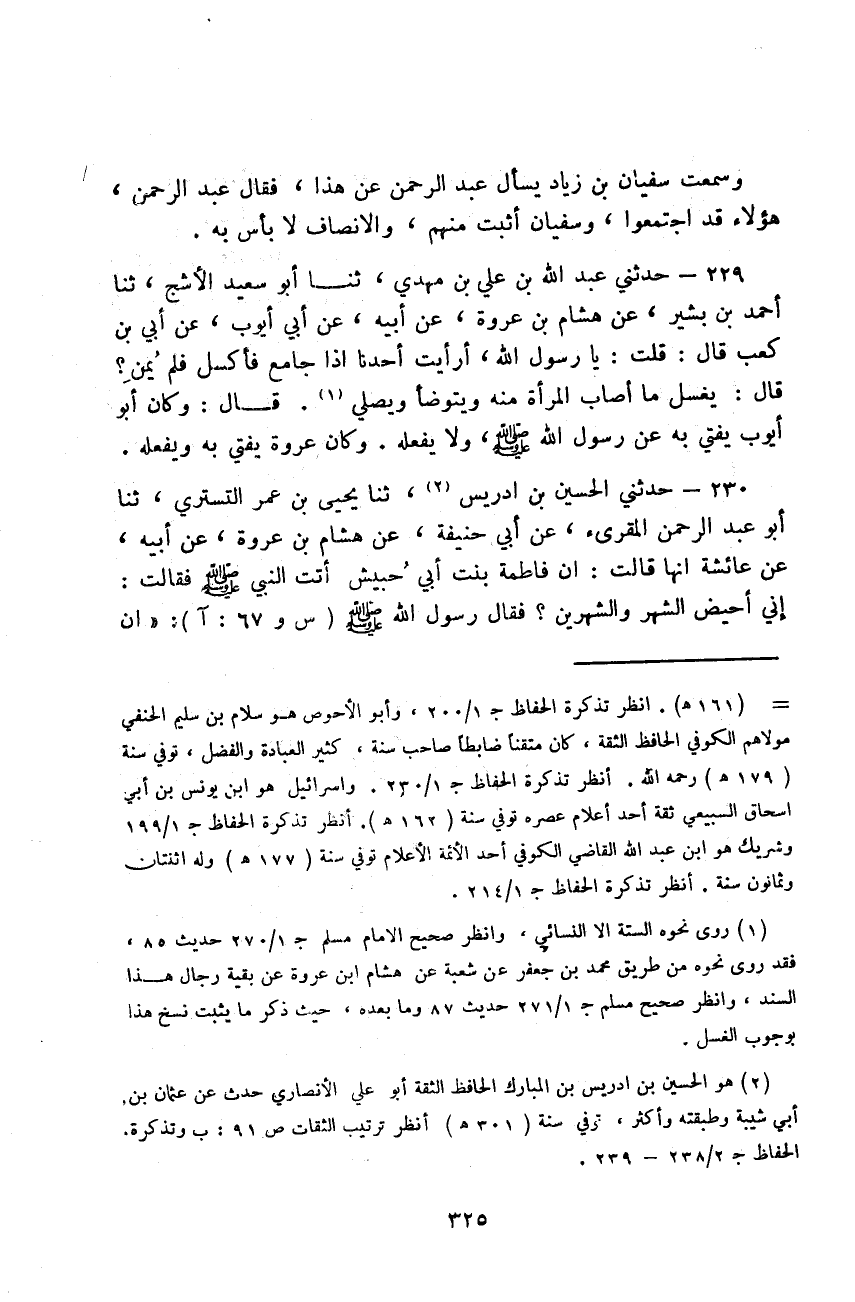 وسمعت سفيان بن زياد يسأل عبد الرحمن عن هذا ، فقال عبد الرحمن ،
هؤلاء قد اجتمعوا ، وسفيان أثبت منهم ، والانصاف لا بأس به .
٢٢٩ – حدثني عبد الله بن علي بن مهدي ، ثنــا أبو سعيد الأشج ، ثنا
أحمد بن بشير ، عن هشام بن عروة ، عن أبيه ، عن أبي أيوب ، عن أبي بن
كعب قال : قلت : يا رسول الله ، أرأيت أحدنا اذا جامع فأكسل فلم يُمنِ؟
قال : يغسل ما أصاب المرأة منه ويتوضأ ويصلي (١) . قـــال : وكان أبو
أيوب يفتي به عن رسول الله ﷺ ، ولا يفعله . وكان عروة يفتي به ويفعله .
٢٣٠ – حدثني الحسين بن ادريس (٢) ، ثنا يحيى بن عمر التستري ، ثنا
أبو عبد الرحمن المقرىء ، عن أبي حنيفة ، عن هشام بن عروة ، عن أبيه ،
عن عائشة انها قالت : ان فاطمة بنت أبي حُبيش أتت النبي ﷺ فقالت :
إني أحيض الشهر والشهرين ؟ فقال رسول الله ﷺ ( س و ٦٧ : آ ): « ان
= (١٦١ ه) . انظر تذكرة الحفاظ ج ٢٠٠/١ ، وأبو الأحوص هـو سلام بن سليم الحنفي
مولاهم الكوفي الحافظ الثقة ، كان متقناً ضابطاً صاحب سنة ، كثير العبادة والفضل ، توفي سنة
( ١٧٩ ه ) رحمه الله . أنظر تذكرة الحفاظ ج ٢٣٠/١ . واسرائيل هو ابن يونس بن أبي
اسحاق السبيعي ثقة أحد أعلام عصره توفي سنة ( ١٦٢ ه ). أنظر تذكرة الحفاظ ج ١٩٩/١
وشريك هو ابن عبد الله القاضي الكوفي أحد الأئمة الأعلام توفي سنة ( ١٧٧ ه ) وله اثنتان
وثمانون سنة . أنظر تذكرة الحفاظ ج ٢١٤/١ .
(١) روى نحوه الستة الا النسائي ، وانظر صحيح الامام مسلم ج ٢٧٠/١ حديث ٨٥ ،
فقد روى نحوه من طريق محمد بن جعفر عن شعبة عن هشام ابن عروة عن بقية رجال هـــذا
السند ، وانظر صحيح مسلم ج ٢٧١/١ حديث ٨٧ وما بعده ، حيث ذكر ما يثبت نسخ هذا
بوجوب الغسل .
(٢) هو الحسين بن ادريس بن المبارك الحافظ الثقة أبو علي الأنصاري حدث عن عثمان بن
أبي شيبة وطبقته وأكثر ، توفي سنة ( ٣٠١ ه ) أنظر ترتيب الثقات ص ٩١ : ب وتذكرة.
الحفاظ ج ٢٣٨/٢ – ٢٣٩ .
٣٢٥